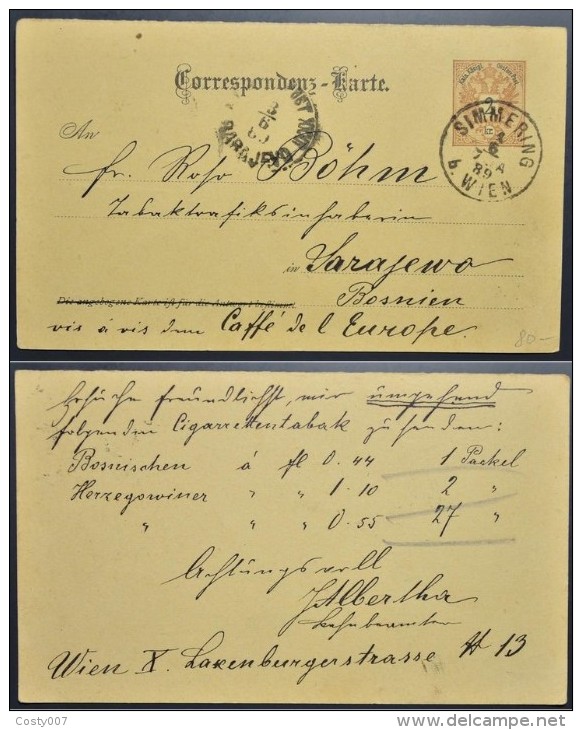 Correspondenz-Karte.
2
SIMMERING
b. WIEN
6
89
3
6
89
SARAJEVO
An
Fr. Rosa Böhm
Tabaktrafiksinhaberin
in Sarajewo
Bosnien
Die angebogene Karte ist für die Antwort bestimmt.
vis á vis dem Caffé de l'Europe.
80-
Ersuche freundlichst, mir umgehend
folgenden Cigarrettentabak zu senden:
Bosnischen á fl 0.44 1 Packel
Herzegowiner " " 1.10 2 "
" " " 0.55 27 "
Achtungsvoll
J Albertha
Wien X. Laxenburgerstrasse № 13
Costy007
www.delcampe.net